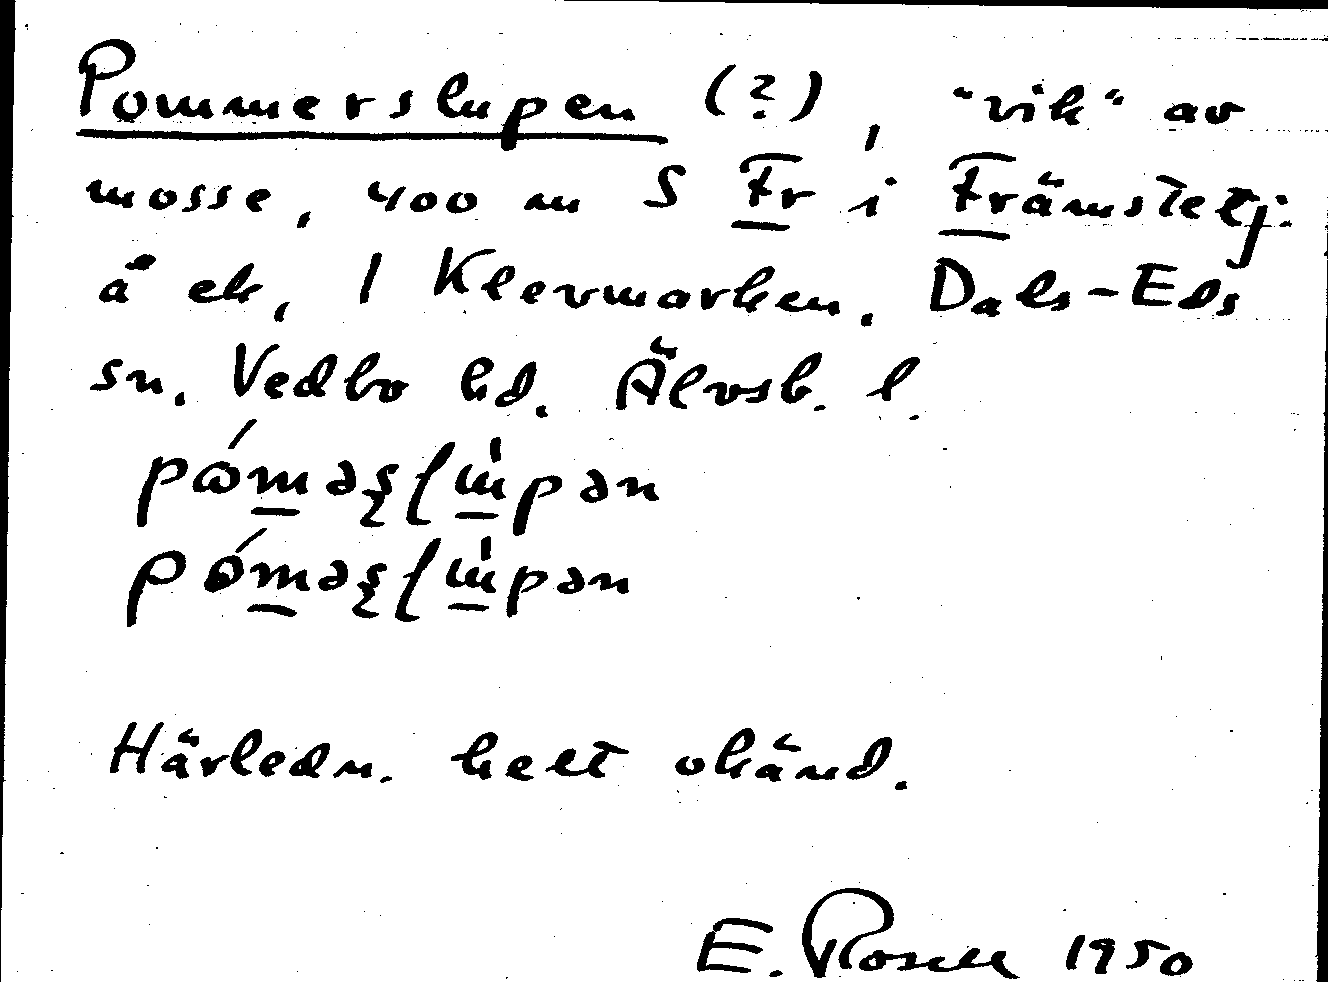 Pommerslupen (?), "vik" av
mosse, 400 m S Fr i Främstetj.
å ek, 1 Klevmarken. Dals-Eds
sn. Vedbo hd. Älvsb. l.
Härledn. helt okänd.
E. Rosell 1950